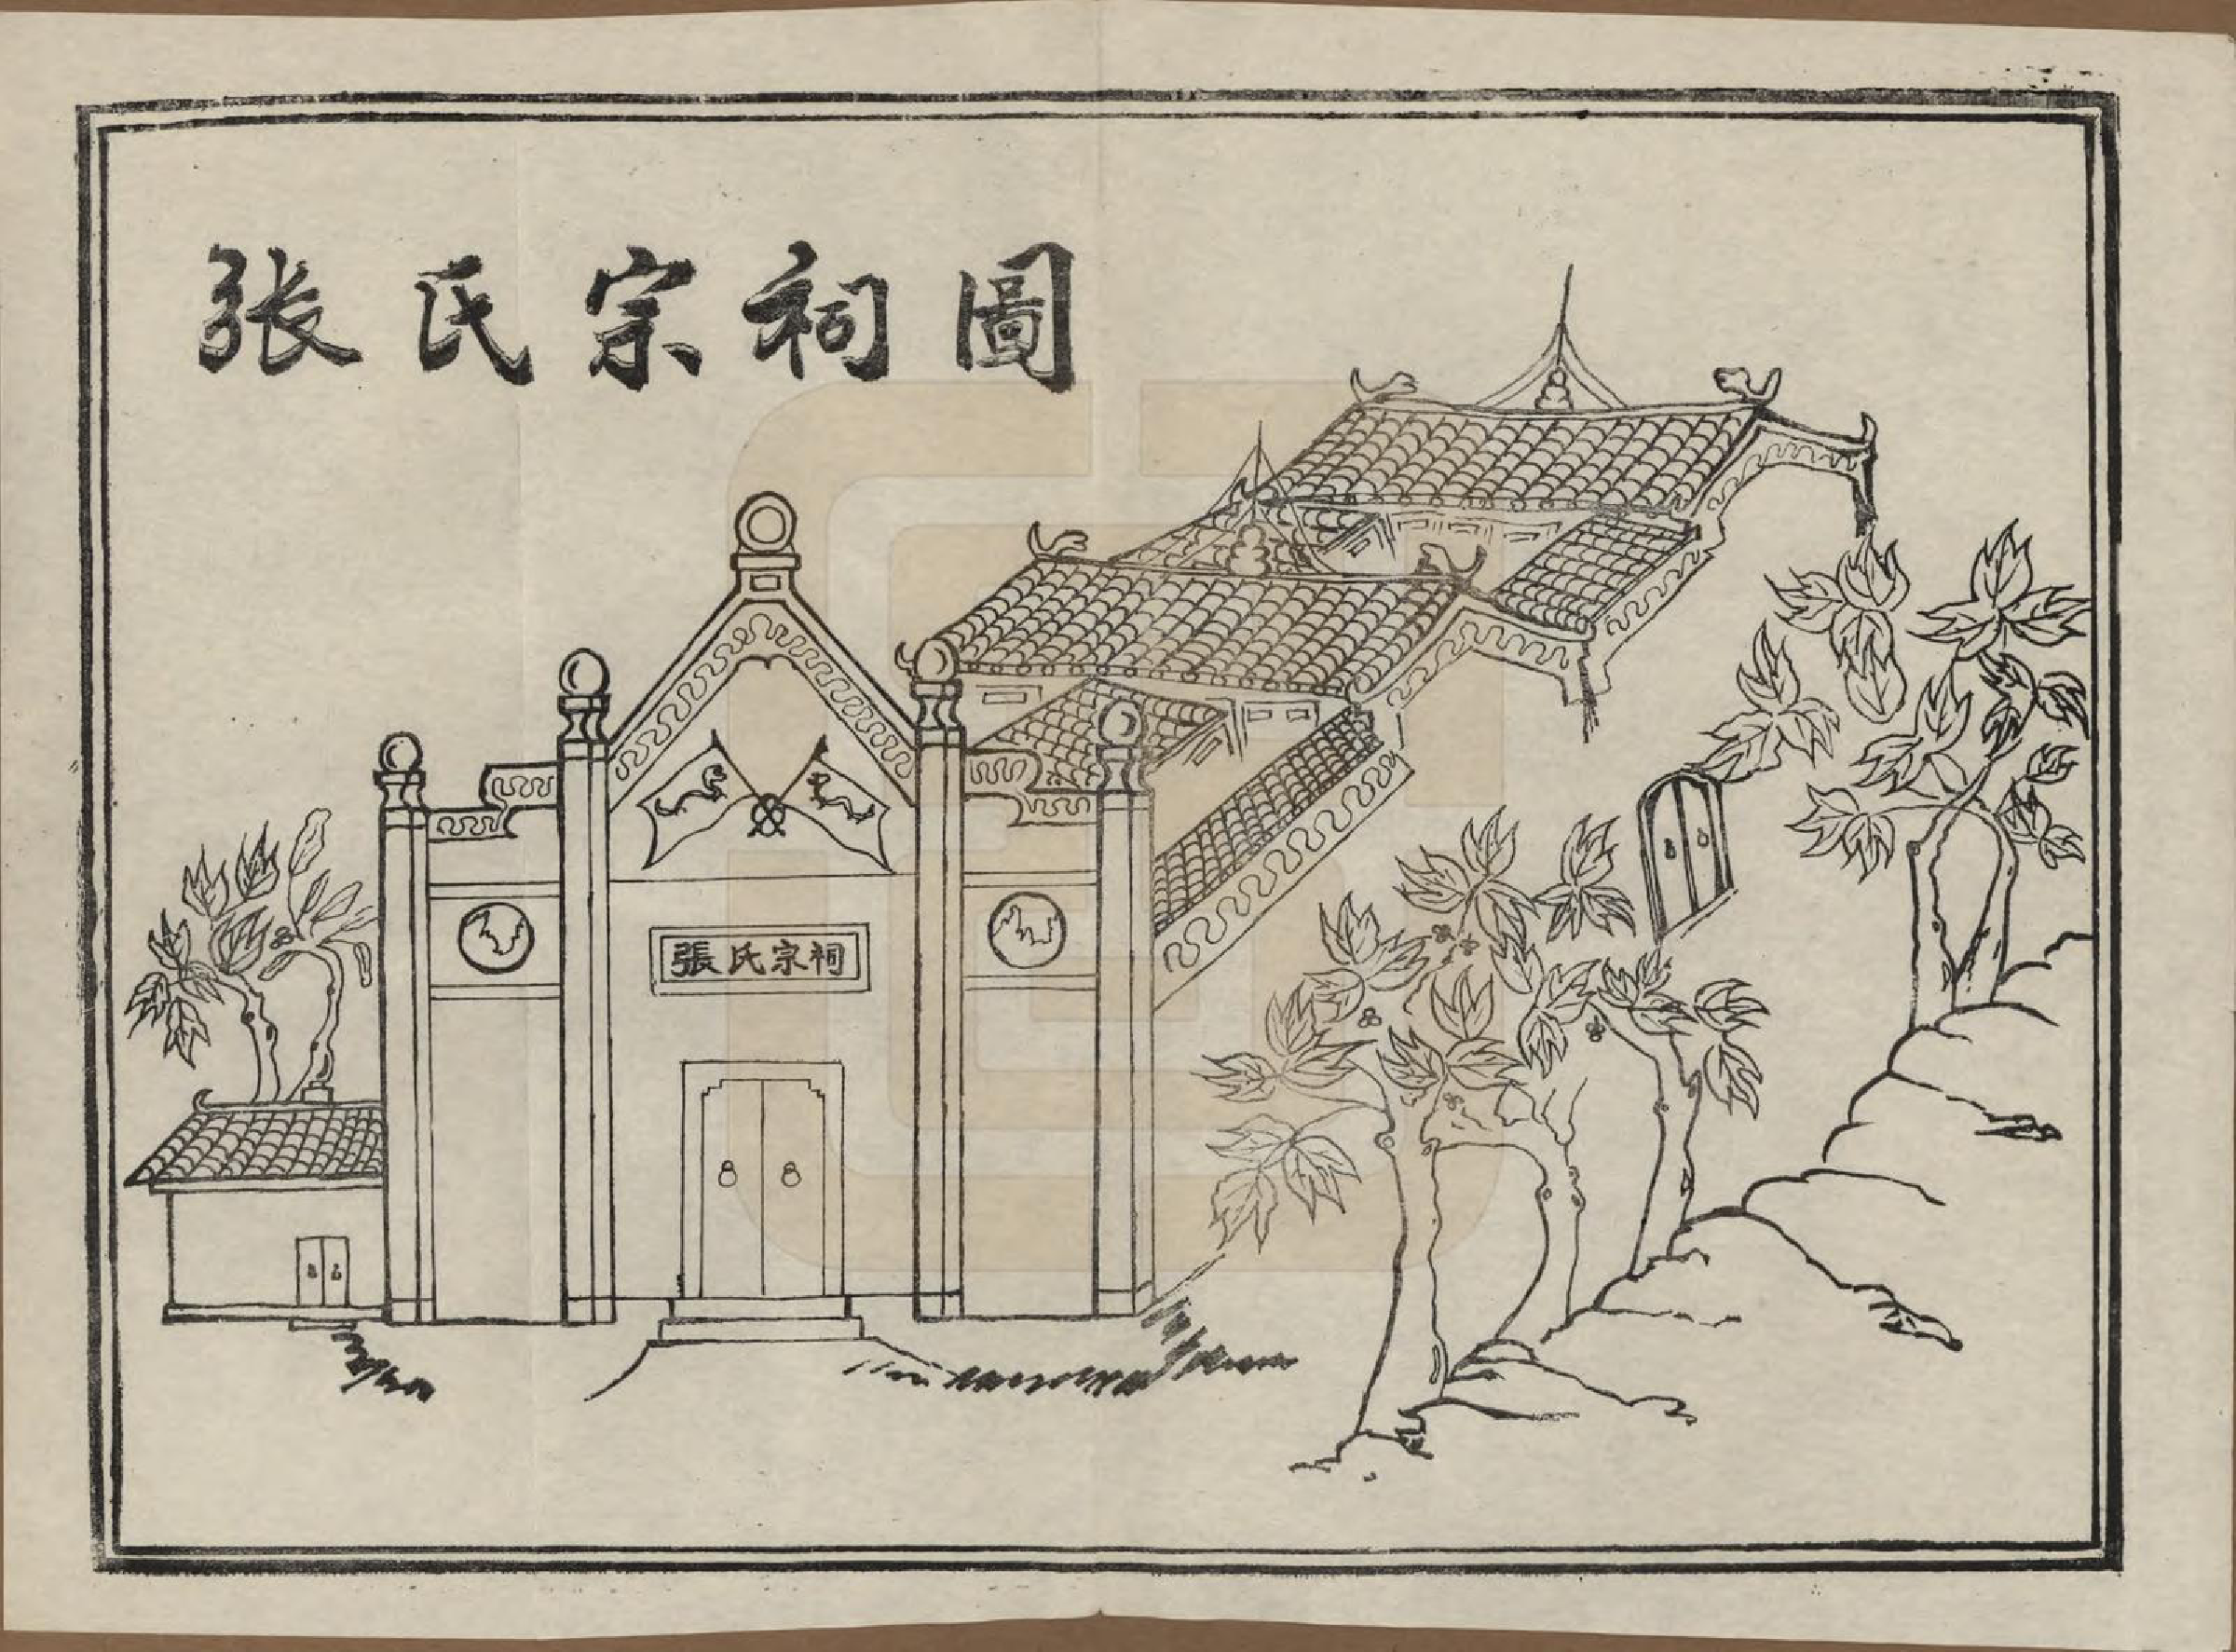 张氏宗祠圖
張氏宗祠